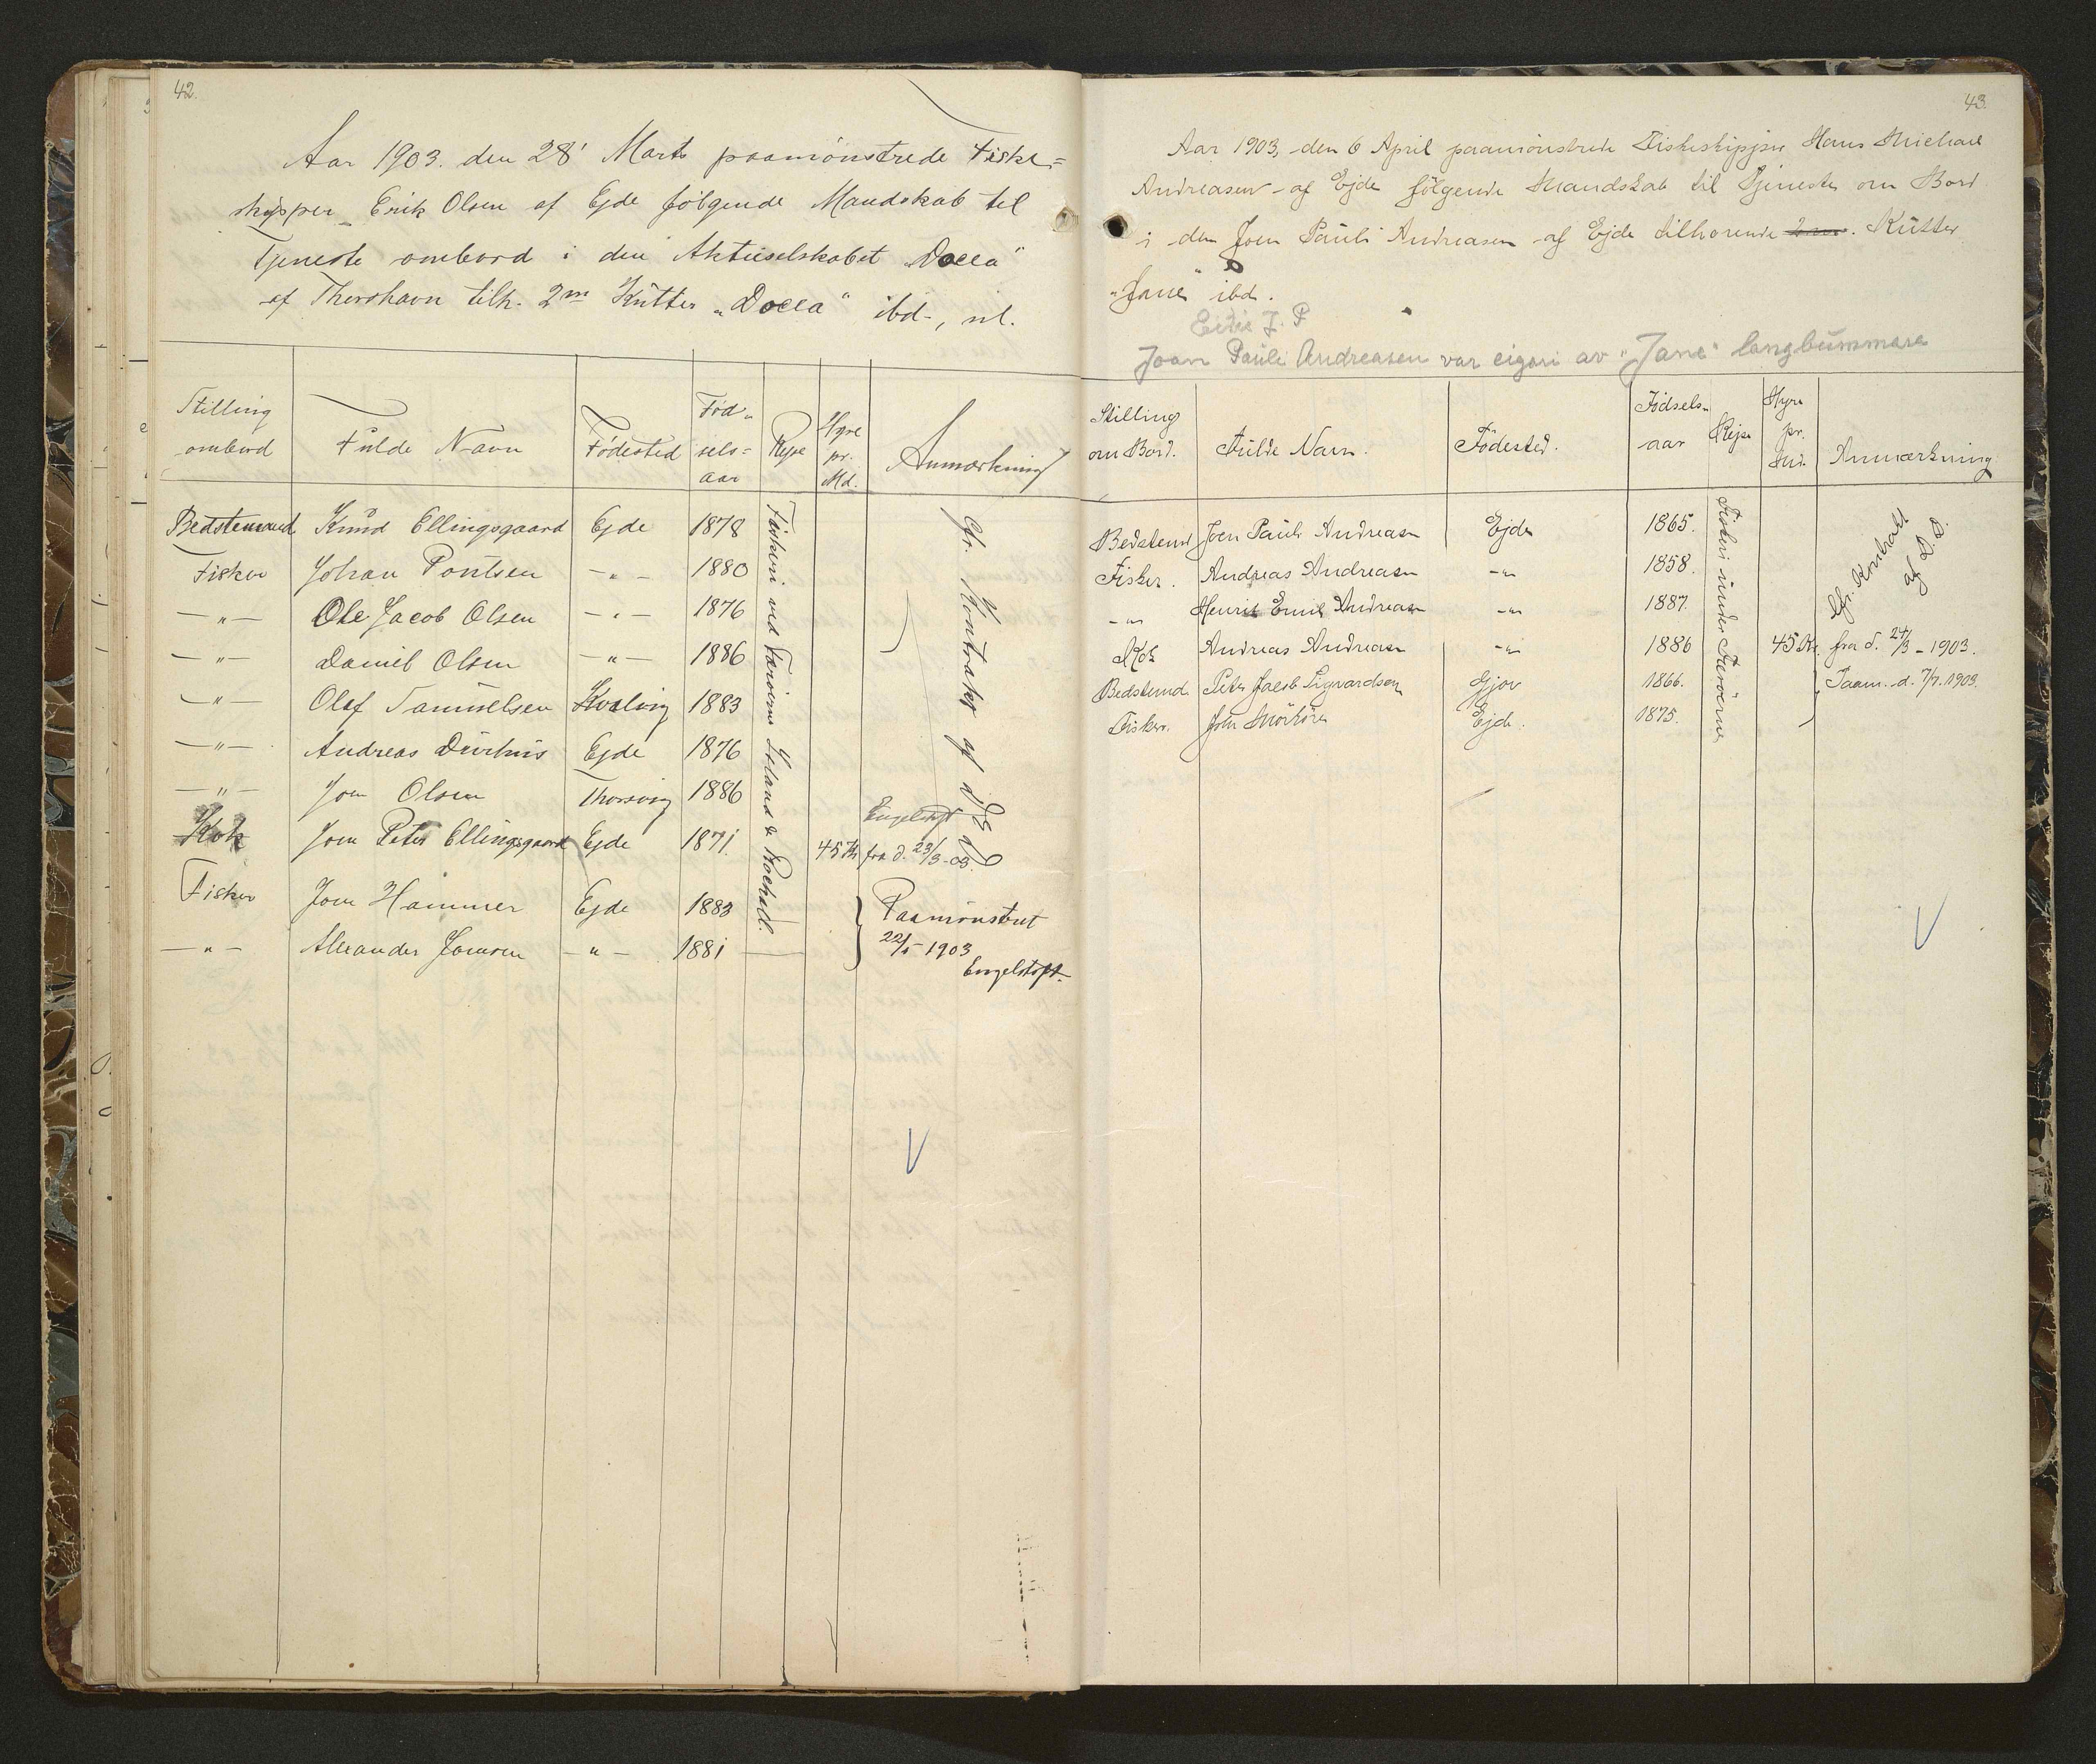 42.
Aar 1903. den 28' Marts paamönstrede Fiske=
skipper Erik Olsen af Ejde fölgende Mandskab til
Tjeneste ombord i den Aktieselskabet „Docea"
af Thorshavn tilh. 2m Kutter „Docea" ibd-, nl.
Stilling ombord | Fulde Navn | Födested | Föd-sels=aar | Rejse | Hyre pr. Md. | Anmærkning
Bedstemand Knud Ellingsgaard Ejde 1878
Fisker Johan Poulsen -"- 1880
-"- Ole Jacob Olsen -"- 1876
-"- Daniel Olsen -"- 1886
-"- Olaf Samuelsen Kvalvig 1883
-"- Andreas Durhuus Ejde 1876
-"- Joen Olsen Thorsvig 1886
Engelstoft
Kok Joen Peter Ellingsgaard Ejde 1871. 45 Kr fra d. 23/3-03.
Fisker Joen Hammer Ejde 1883 Paamönstret
-"- Alexander Joensen -"- 1881 22/5-1903
Engelstoft.
Fiskeri ved Færöerne Island & Rockall.
Cfr. Kontrakt af D. D.
43.
Aar 1903, den 6 April paamönstrede Fiskeskipper Hans Michael
Andreasen af Ejde fölgende Mandskab til Tjeneste om Bord
i den Joen Pauli Andreasen af Ejde tilhörende 2m. Kutter
„Jane" ibd.
Eidis J. P
Joan Pauli Andreasen var eigari av "Jane" langbummara
Stilling om Bord. | Fulde Navn. | Födested. | Födsels-aar | Rejse | Hyre pr. Md. | Anmærkning
Bedstemd Joen Pauli Andreasen Ejde 1865.
Fisker. Andreas Andreasen -"- 1858.
-"- Henrik Emil Andreasen -"- 1887.
Kok Andreas Andreasen -"- 1886 45 Kr. fra d. 24/3-1903.
Bedstemd. Peter Jacob Sigvardsen Gjov 1866. Paam. d. 7/7.1903.
Fisker. Joen Mörköre Ejde. 1875.
Fiskeri under Færöerne
Cfr. Kontrakt
af D. D.